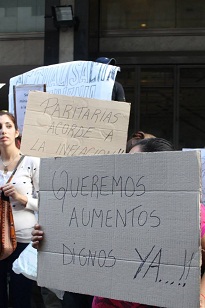 PARITARIAS
ACORDE A
LA INFLACION!!
QUEREMOS
AUMENTOS
DIGNOS YA.....!!